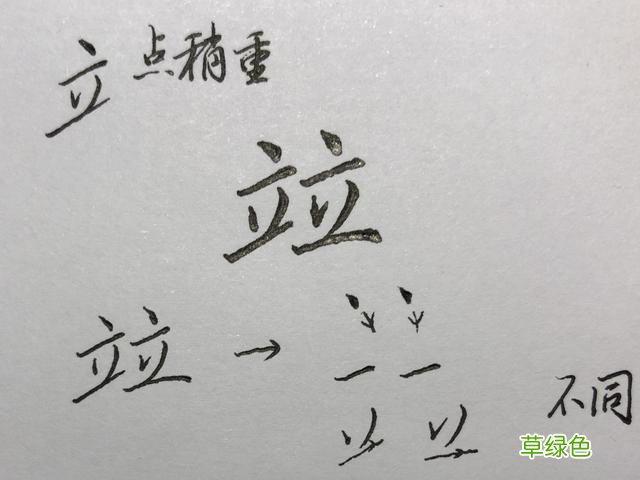 立 点稍重
竝
竝 → 不同
草绿色